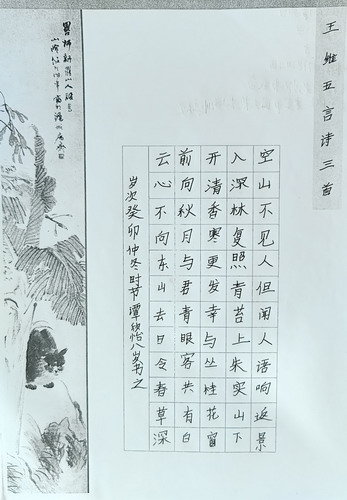 王维五言诗三首
空山不见人但闻人语响返景
入深林复照青苔上朱实山下
开清香寒更发幸与丛桂花窗
前向秋月与君青眼客共有白
云心不向东山去日令春草深
岁次癸卯仲冬时节谭欣怡八岁书之